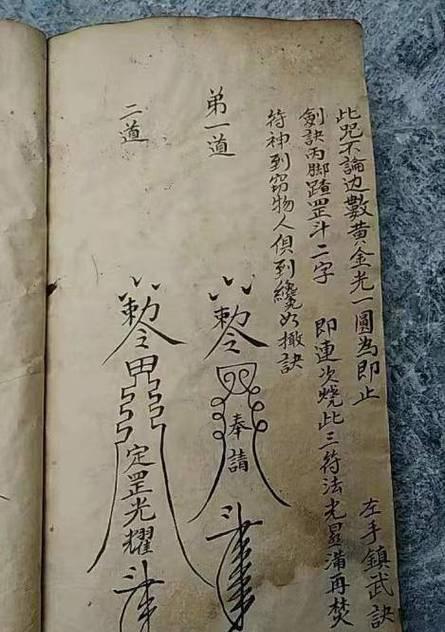 此咒不論边數黃金光一圓為即止 左手鎮武訣
劍訣兩脚踏罡斗二字 即連次燒此三符法光显滿再焚
符神到窃物人俱到纔好撤訣
第一道
勅令
奉請
二道
勅令
甲
定罡光耀